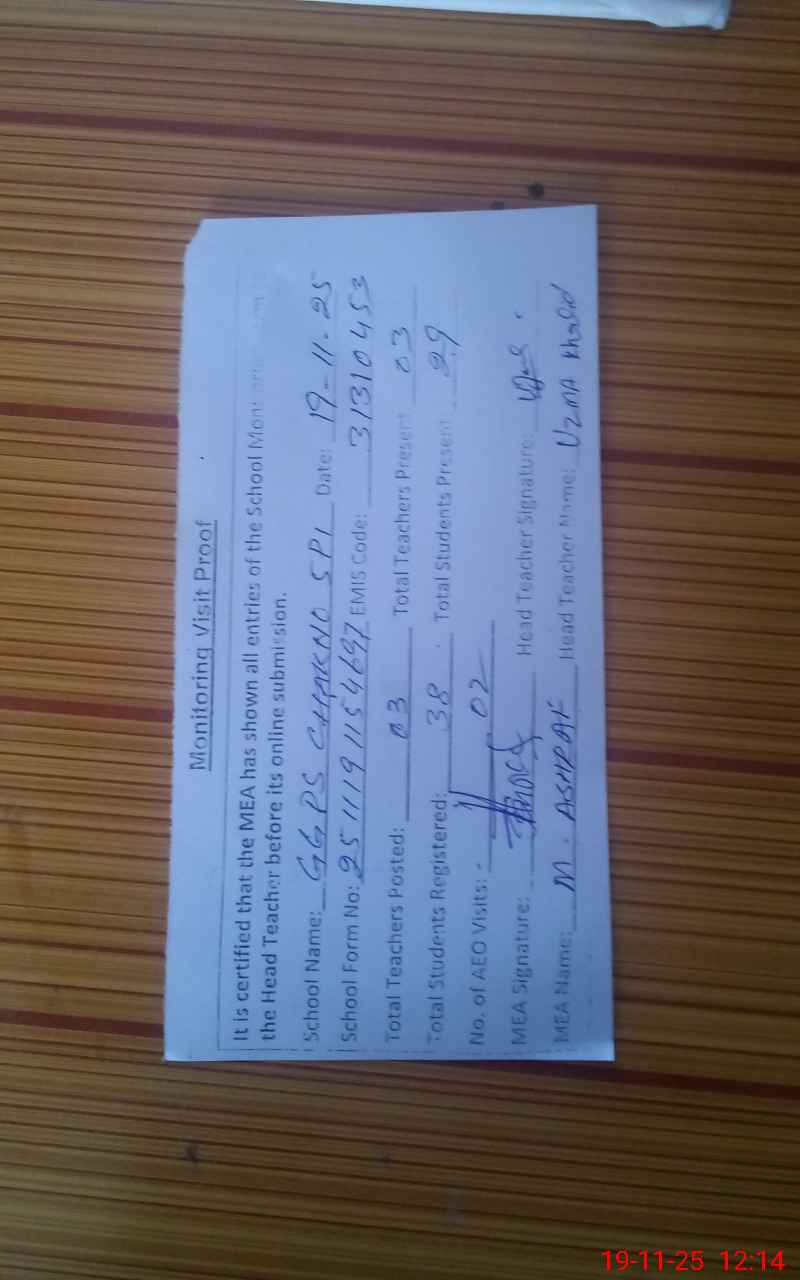 Monitoring Visit Proof
It is certified that the MEA has shown all entries of the School
the Head Teacher before its online submission.
School Name: GGPS CHAKNO SP1 Date: 19-11-25
School Form No: 25111911154697 EMIS Code: 31310453
Total Teachers Posted: 03 Total Teachers Present 03
Total Students Registered: 38 Total Students Present: 29
No. of AEO Visits: 02
MEA Signature: Head Teacher Signature:
MEA Name: M. ASHRAF Head Teacher Name: UZMA Khalid
19-11-25 12:14